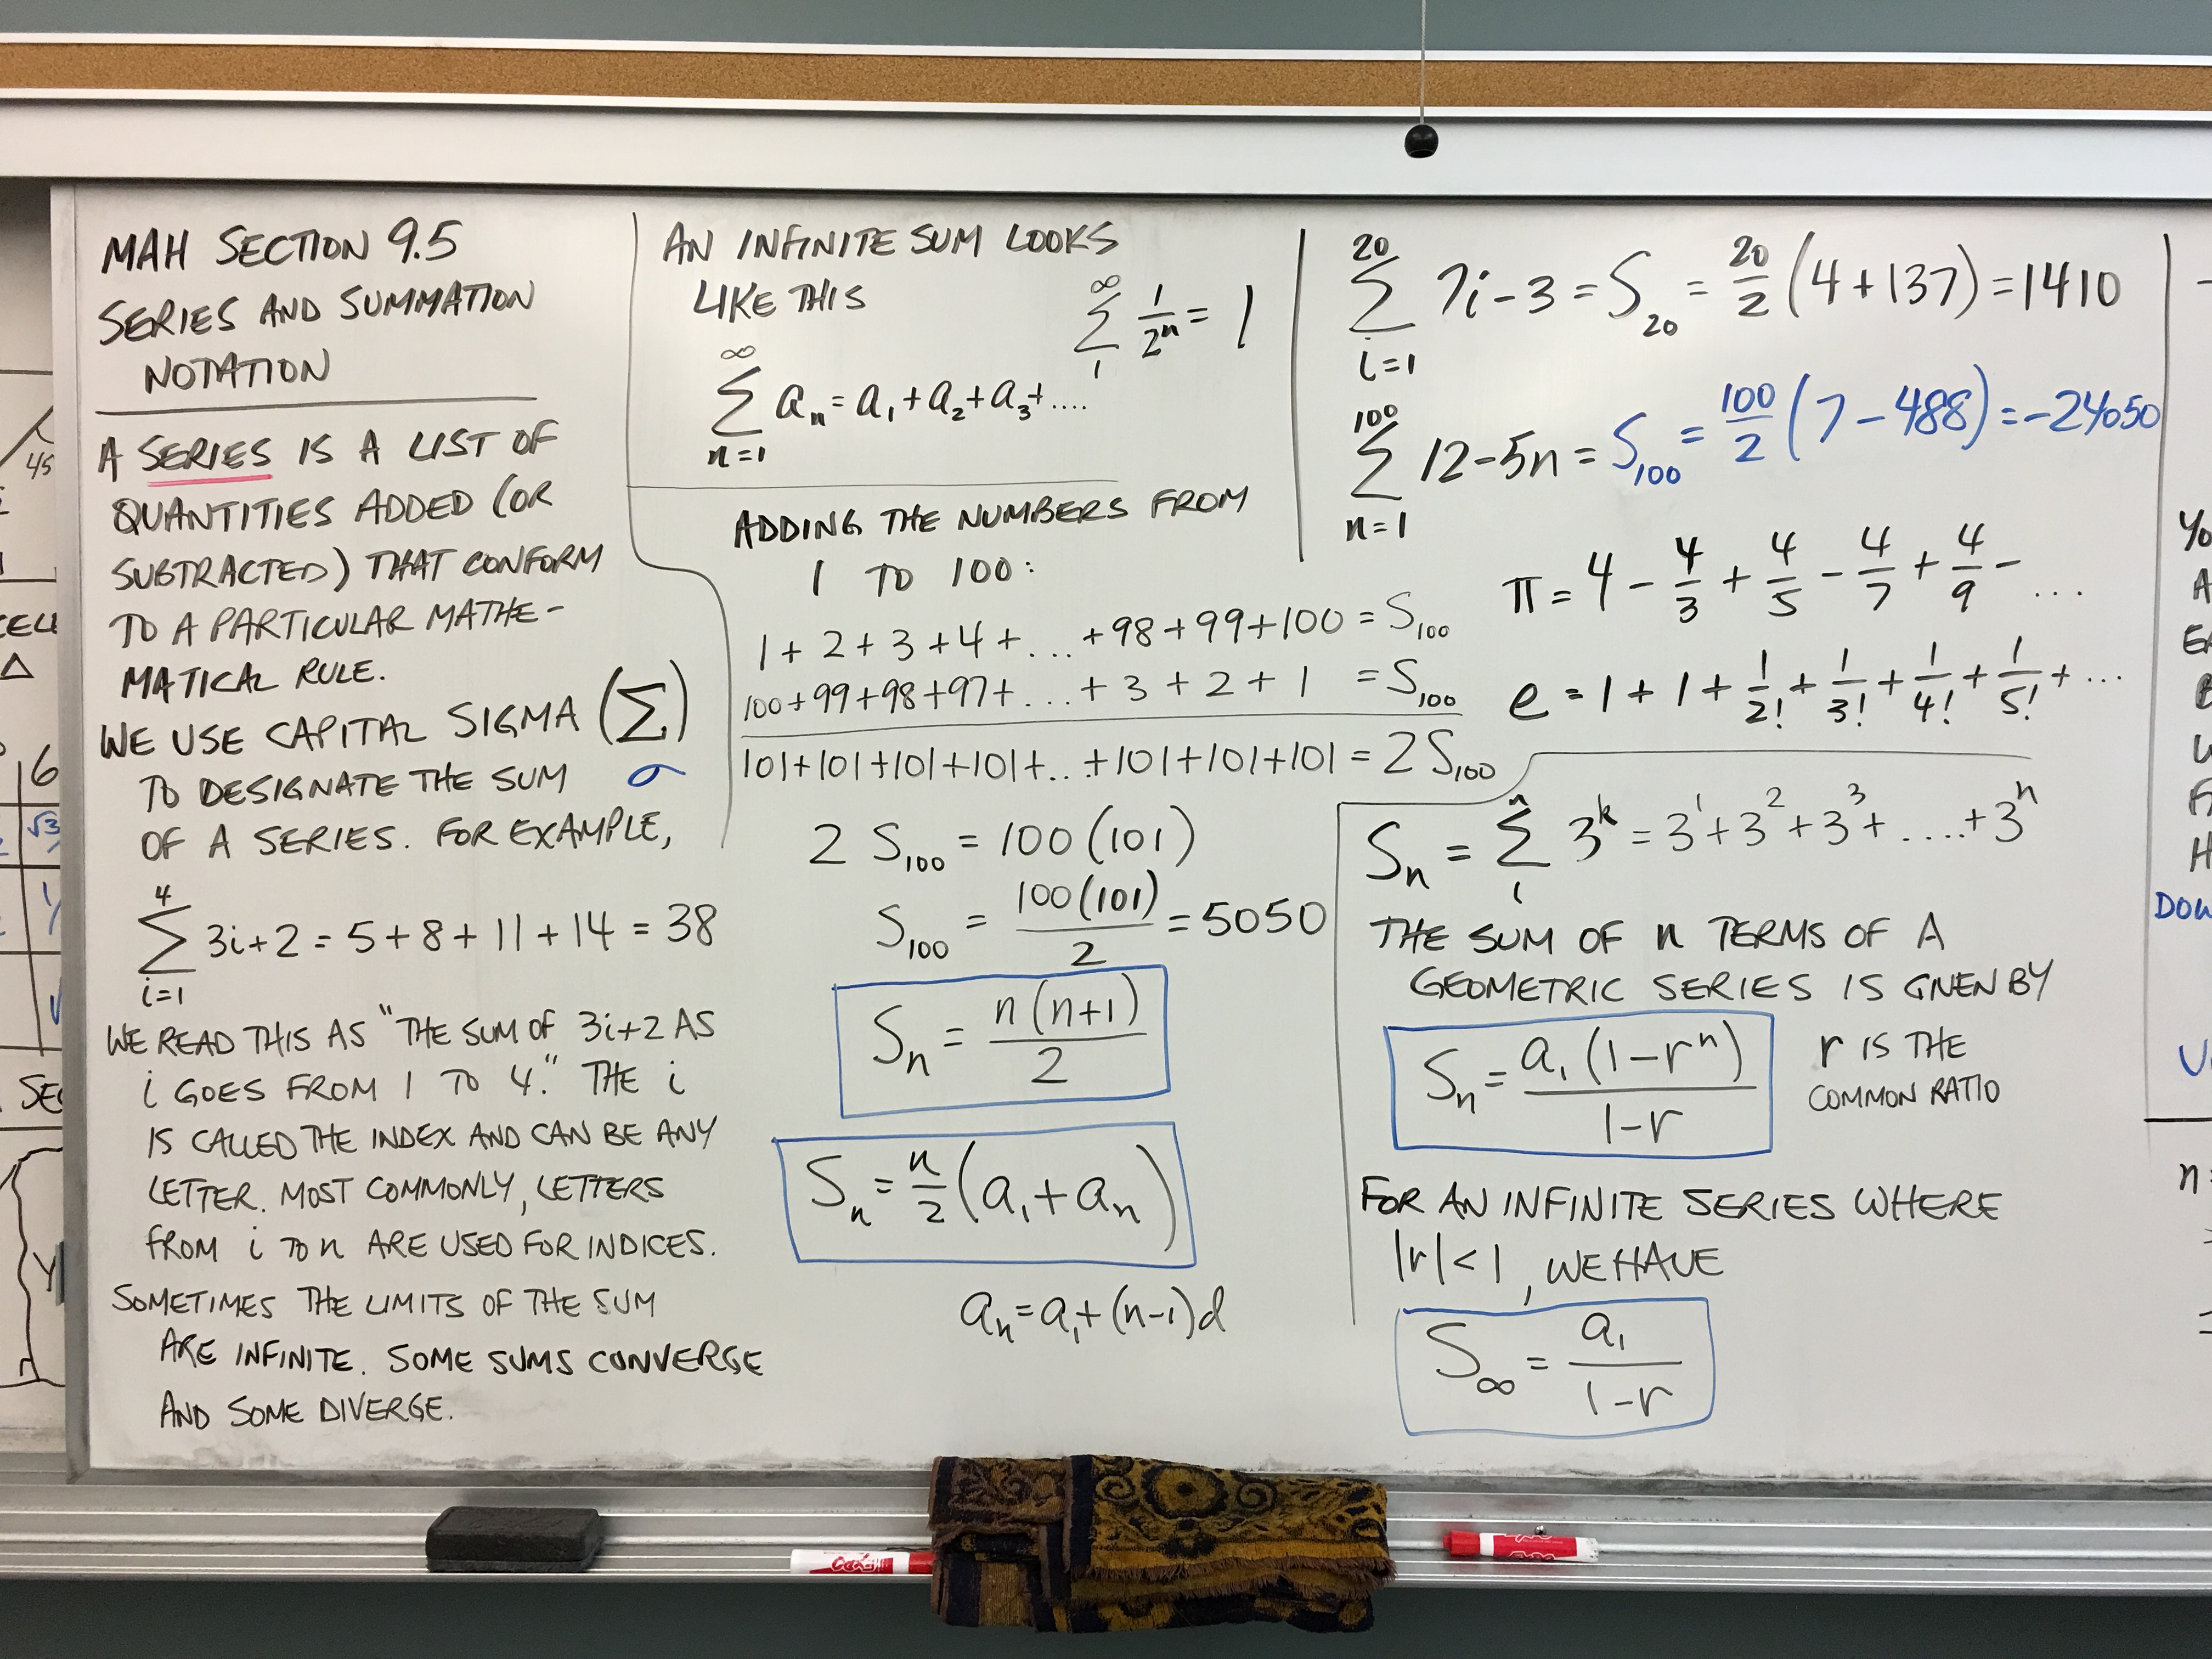 MAH SECTION 9.5
SERIES AND SUMMATION
NOTATION
A SERIES IS A LIST OF
QUANTITIES ADDED (OR
SUBTRACTED) THAT CONFORM
TO A PARTICULAR MATHE-
MATICAL RULE.
WE USE CAPITAL SIGMA (Σ)
TO DESIGNATE THE SUM σ
OF A SERIES. FOR EXAMPLE,
4
Σ 3i+2 = 5+8+11+14 = 38
i=1
WE READ THIS AS "THE SUM OF 3i+2 AS
i GOES FROM 1 TO 4." THE i
IS CALLED THE INDEX AND CAN BE ANY
LETTER. MOST COMMONLY, LETTERS
FROM i TO n ARE USED FOR INDICES.
SOMETIMES THE LIMITS OF THE SUM
ARE INFINITE. SOME SUMS CONVERGE
AND SOME DIVERGE.
AN INFINITE SUM LOOKS
LIKE THIS
∞
Σ 1/2ⁿ = 1
1
∞
Σ aₙ = a₁+a₂+a₃+....
n=1
ADDING THE NUMBERS FROM
1 TO 100:
1+2+3+4+...+98+99+100 = S₁₀₀
100+99+98+97+...+3+2+1 = S₁₀₀
101+101+101+101+...+101+101+101 = 2S₁₀₀
2 S₁₀₀ = 100(101)
S₁₀₀ = 100(101)/2 = 5050
Sₙ = n(n+1)/2
Sₙ = n/2 (a₁+aₙ)
aₙ = a₁+(n-1)d
20
Σ 7i-3 = S₂₀ = 20/2 (4+137) = 1410
i=1
100
Σ 12-5n = S₁₀₀ = 100/2 (7-488) = -24050
n=1
π = 4 - 4/3 + 4/5 - 4/7 + 4/9 - ...
e = 1+1+1/2!+1/3!+1/4!+1/5!+...
n
Sₙ = Σ 3ᵏ = 3¹+3²+3³+....+3ⁿ
1
THE SUM OF n TERMS OF A
GEOMETRIC SERIES IS GIVEN BY
Sₙ = a₁(1-rⁿ)/1-r
r IS THE
COMMON RATIO
FOR AN INFINITE SERIES WHERE
|r|<1, WE HAVE
S∞ = a₁/1-r
45
6
√3